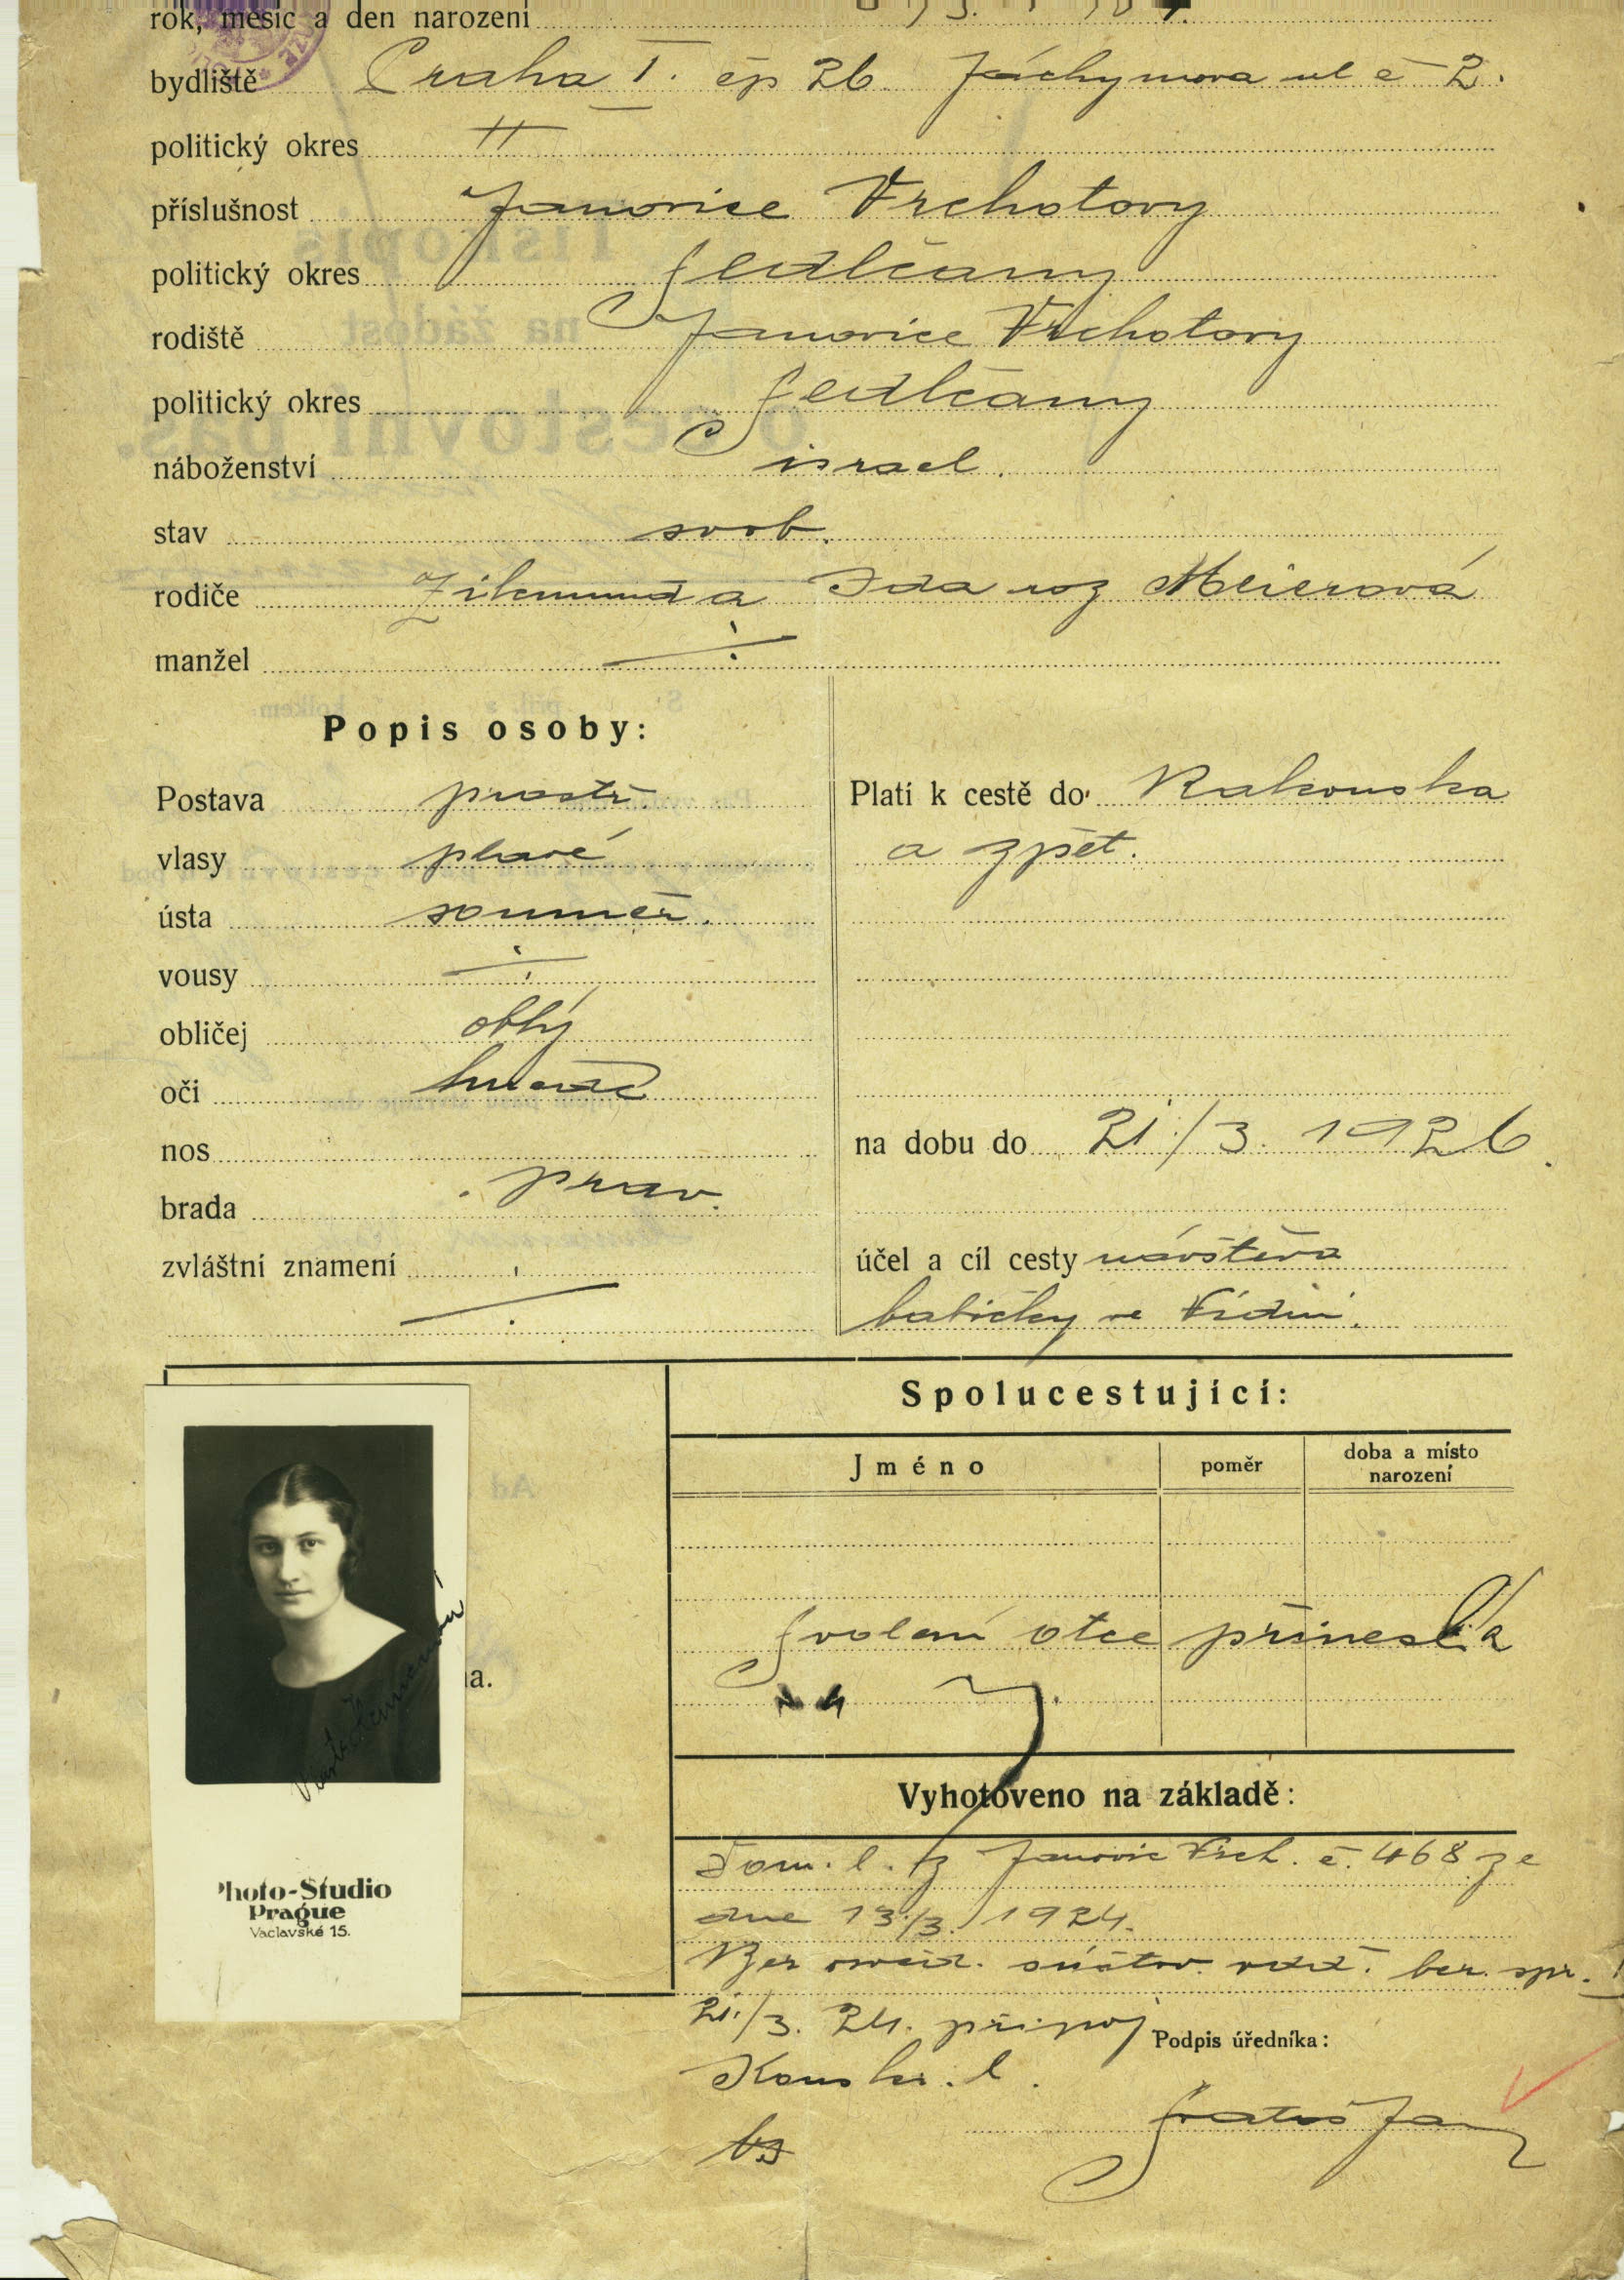 rok, měsíc a den narození
bydliště Praha I. čp 26 Jáchymova ul č 2.
politický okres "
příslušnost Janovice Vrchotovy
politický okres Sedlčany
rodiště Janovice Vrchotovy
politický okres Sedlčany
náboženství israel.
stav svob.
rodiče Zikmund a Ida roz Meierová
manžel ÷
Popis osoby:
Postava prostř.
vlasy plavé
ústa souměr.
vousy ÷
obličej oblý
oči hnědé
nos
brada prav.
zvláštní znamení ÷
Platí k cestě do Rakouska
a zpět.
na dobu do 21./3. 1926.
účel a cíl cesty návštěva
babičky ve Vídni.
Spolucestující:
Jméno poměr doba a místo narození
Svolení otce přinesla
Vyhotoveno na základě:
Dom. l. z Janovic Vrch. č. 468 ze
dne 13./3. 1924.
Ber osvěd. súčtov. odd. ber. spr.
21./3. 24. připoj
Konskr. l.
Podpis úředníka:
na.
Photo-Studio
Prague
Vaclavské 15.